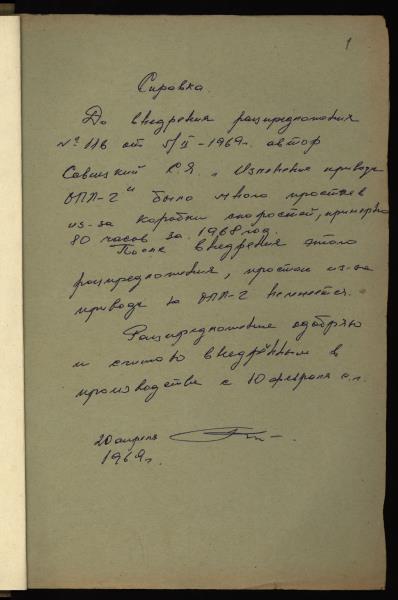 1
Справка.
До внедрения рацпредложения
№ 116 от 5/II-1969г. автор
Савицкий С.Я. „Изменение привода
ОПП-2" было много простоев
из-за коробки скоростей, примерно
80 часов за 1968 год.
После внедрения этого
рацпредложения, простоя из-за
привода к ОПП-2 не имеется.
Рацпредложение одобряю
и считаю внедрённым в
производстве с 10 февраля с.г.
20 апреля
1969г.